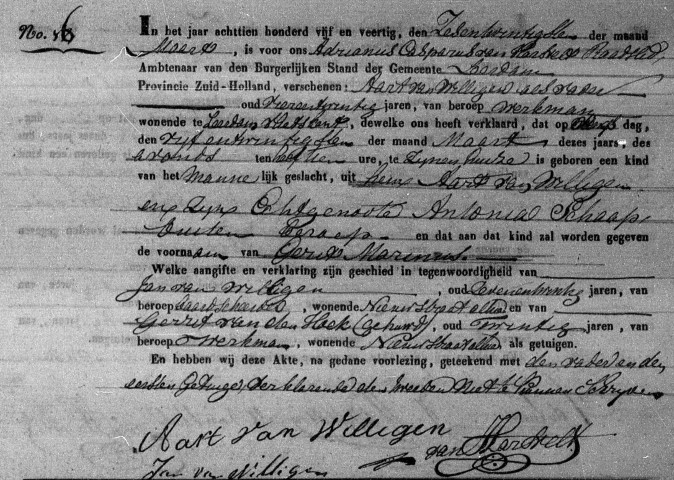 No. 6
In het jaar achttien honderd vijf en veertig, den Zesentwintigsten der maand
Maart, is voor ons Adrianus Casparus van Raadslid,
Ambtenaar van den Burgerlijken Stand der Gemeente Leerdam
Provincie Zuid-Holland, verschenen: Aart van Willigen als vader
oud vierentwintig jaren, van beroep Werkman
wonende te Leerdam, dewelke ons heeft verklaard, dat op dag,
den vijfentwintigsten der maand Maart dezes jaars, des
avonds ten ure, te zijnen huize is geboren een kind
van het Mannelijk geslacht, uit hem Aart van Willigen
en zijne Echtgenoote Antonia Schaap
buiten beroep en dat aan dat kind zal worden gegeven
de voornamen van Gerit Marinus.
Welke aangifte en verklaring zijn geschied in tegenwoordigheid van
Jan van Willigen, oud zevenentwintig jaren, van
beroep, wonende Nieuwstraat alhier en van
Gerrit van der Hoek (gehuwd), oud twintig jaren, van
beroep Werkman, wonende Nieuwstraat alhier als getuigen.
En hebben wij deze Akte, na gedane voorlezing, geteekend met den vader en den
eersten Getuige, verklarende den tweeden Niet te kunnen Schrijven
Aart van Willigen
Jan van Willigen